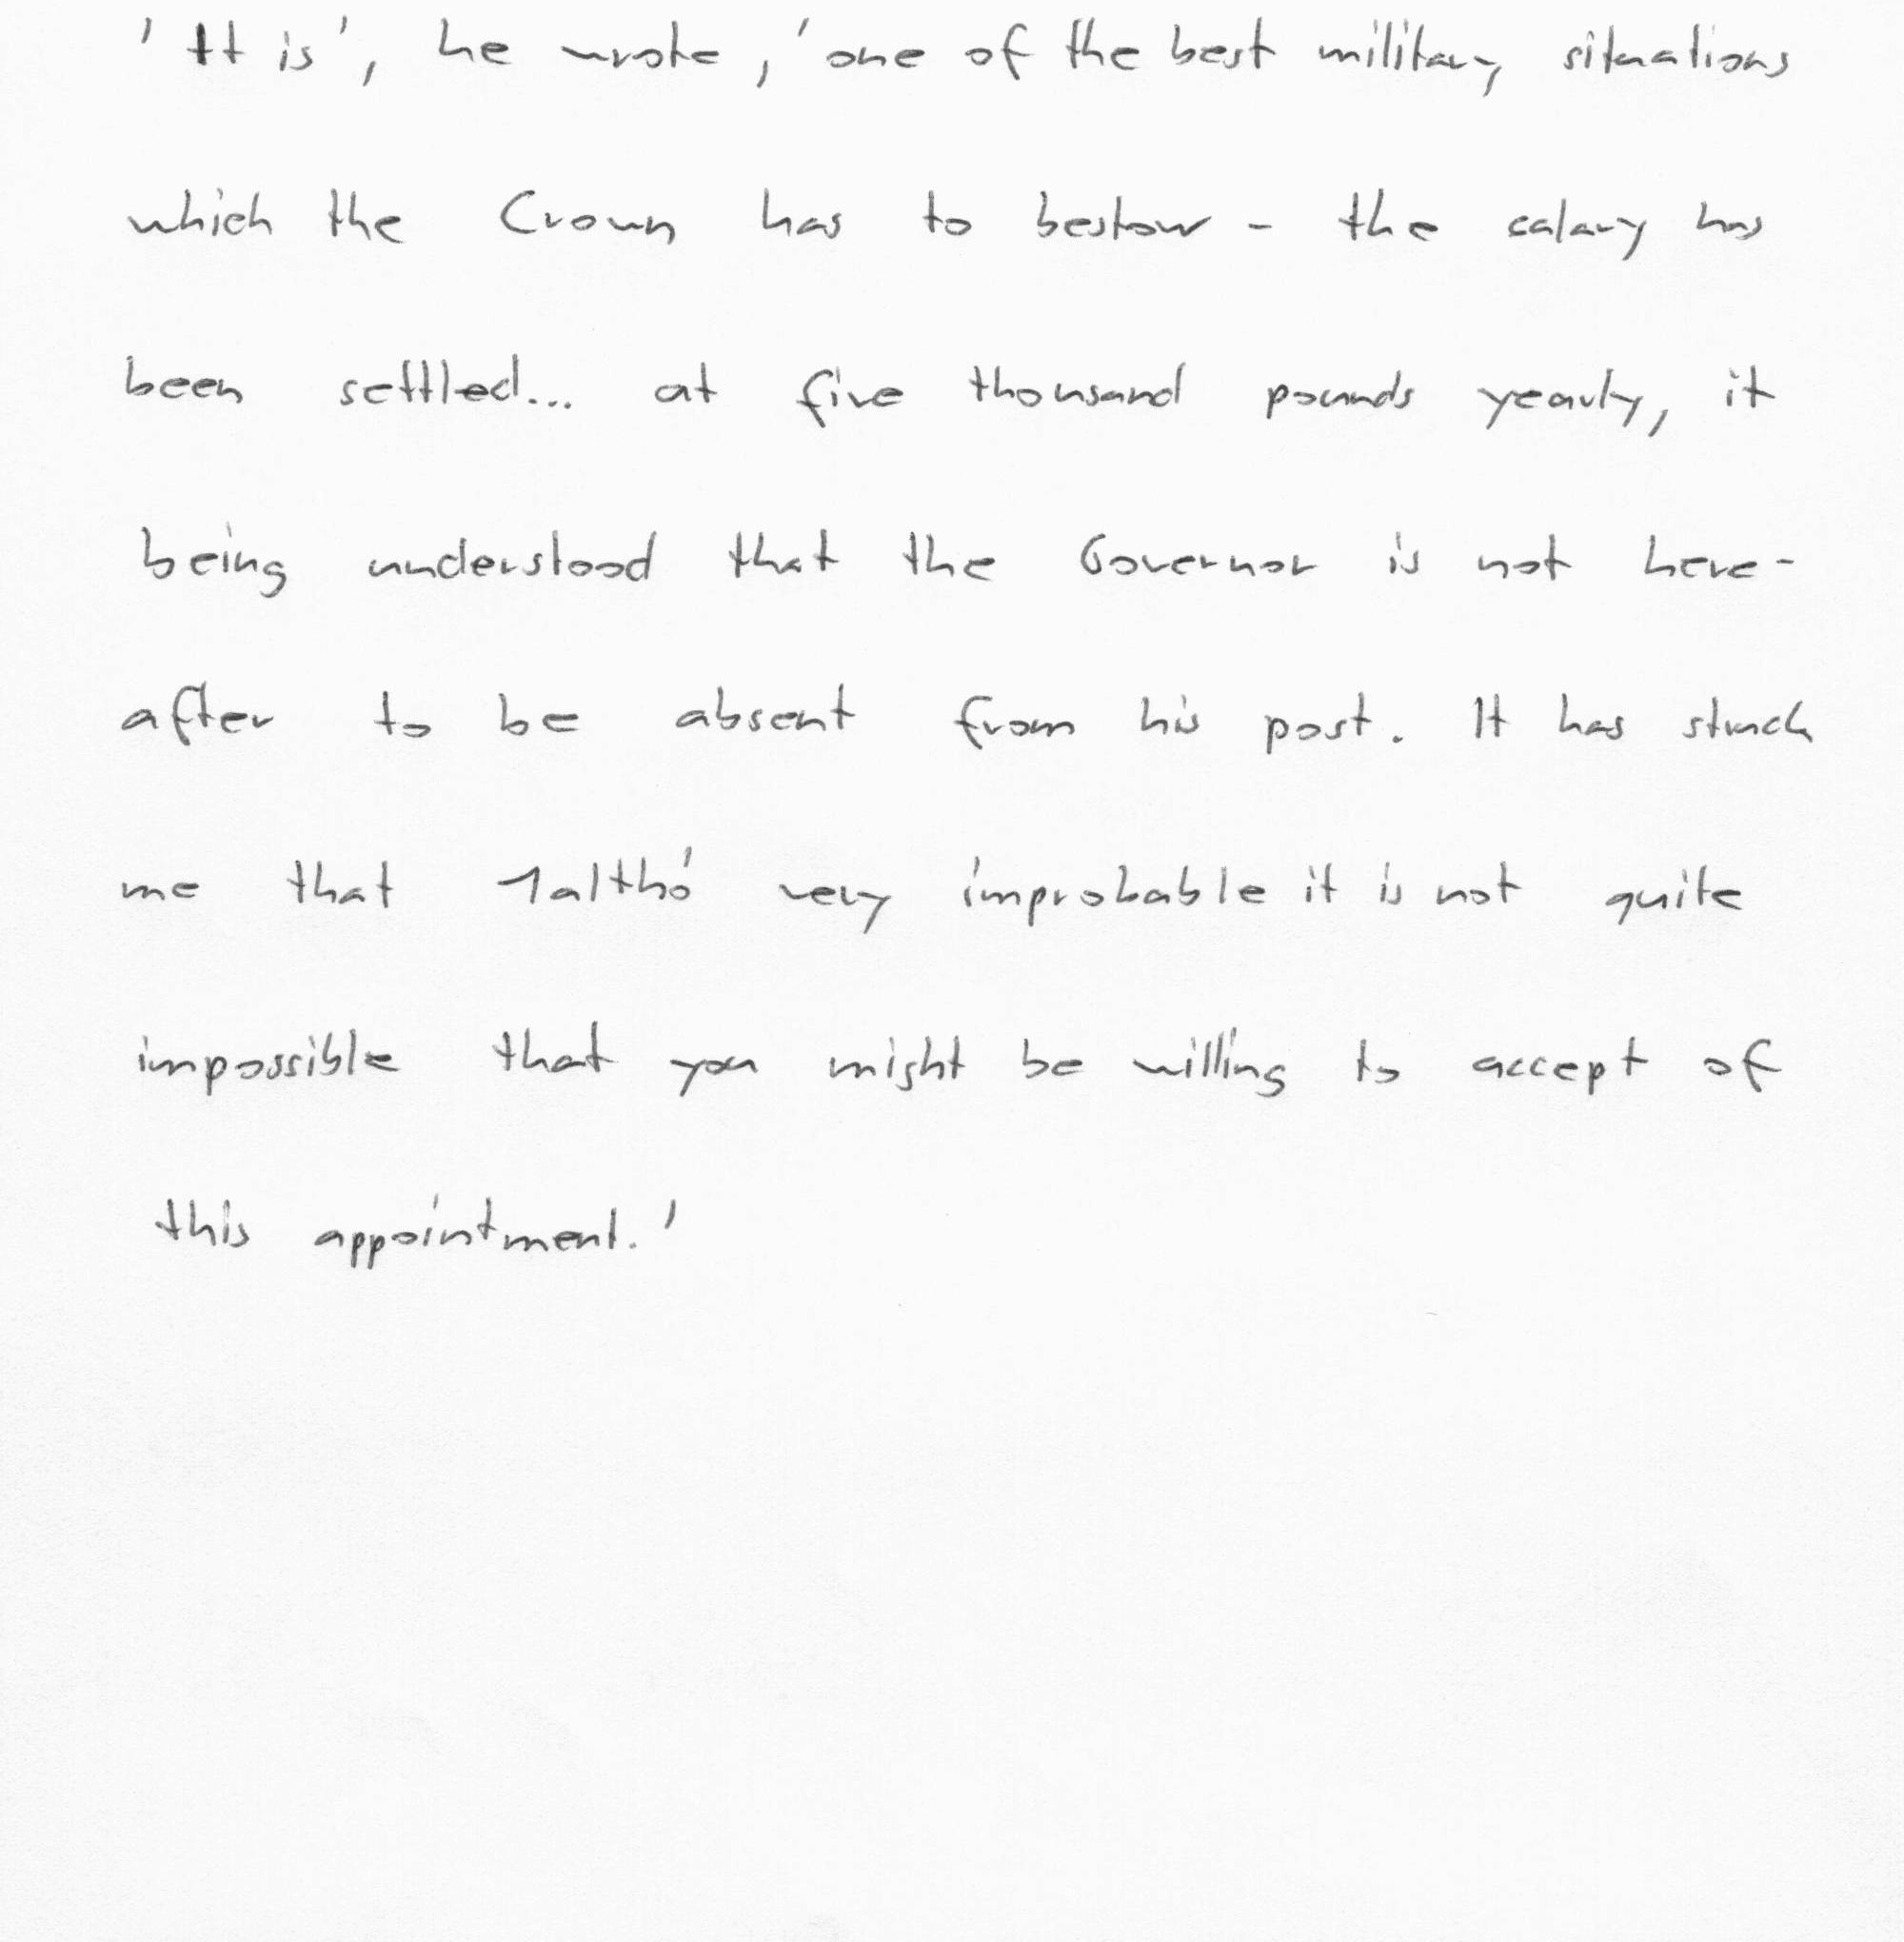 ' It is ', he wrote, 'one of the best military situations
which the Crown has to bestow - the salary has
been settled... at five thousand pounds yearly, it
being understood that the Governor is not here-
after to be absent from his post. It has struck
me that 1altho' very improbable it is not quite
impossible that you might be willing to accept of
this appointment.'